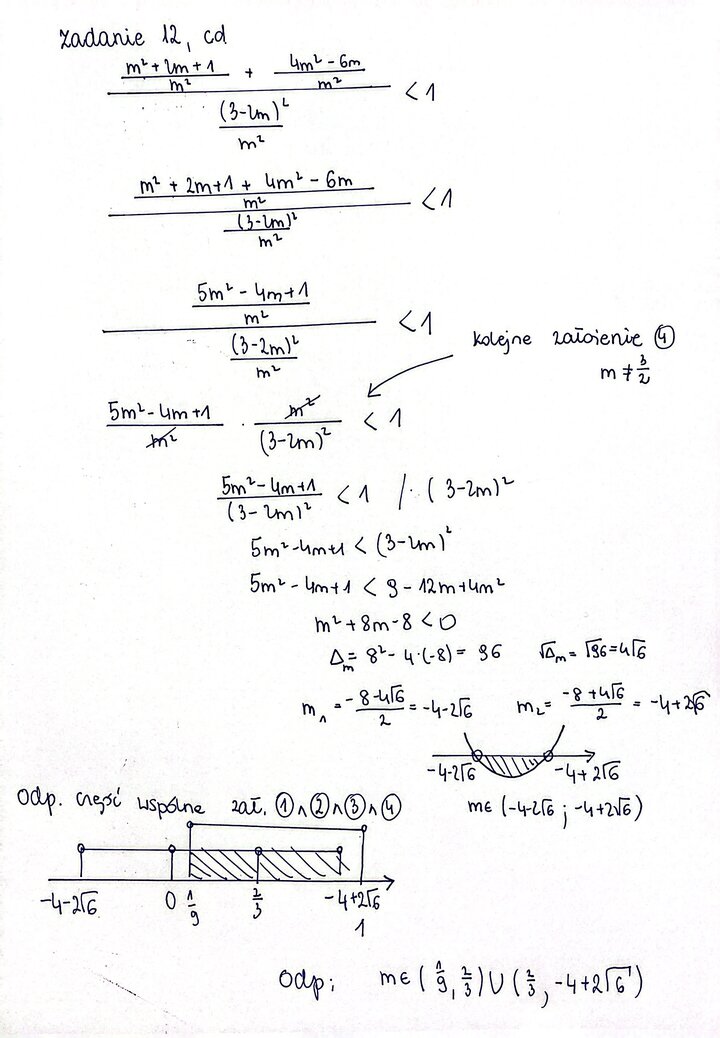 zadanie 12, cd
\frac{\frac{m²+2m+1}{m²} + \frac{4m²-6m}{m²}}{\frac{(3-2m)²}{m²}} < 1
\frac{\frac{m²+2m+1+4m²-6m}{m²}}{\frac{(3-2m)²}{m²}} < 1
\frac{\frac{5m²-4m+1}{m²}}{\frac{(3-2m)²}{m²}} < 1
kolejne założenie ④
m ≠ \frac{3}{2}
\frac{5m²-4m+1}{m²} · \frac{m²}{(3-2m)²} < 1
\frac{5m²-4m+1}{(3-2m)²} < 1 /·(3-2m)²
5m²-4m+1 < (3-2m)²
5m²-4m+1 < 9-12m+4m²
m²+8m-8<0
Δm = 8²-4·(-8) = 96 √Δm = √96 = 4√6
m₁ = \frac{-8-4√6}{2} = -4-2√6 m₂ = \frac{-8+4√6}{2} = -4+2√6
-4-2√6 -4+2√6
m∈(-4-2√6 ; -4+2√6)
Odp. część wspólne zał. ①∧②∧③∧④
-4-2√6 0 \frac{1}{9} \frac{2}{3} -4+2√6
1
Odp; m∈(\frac{1}{9}, \frac{2}{3})∪(\frac{2}{3}, -4+2√6)